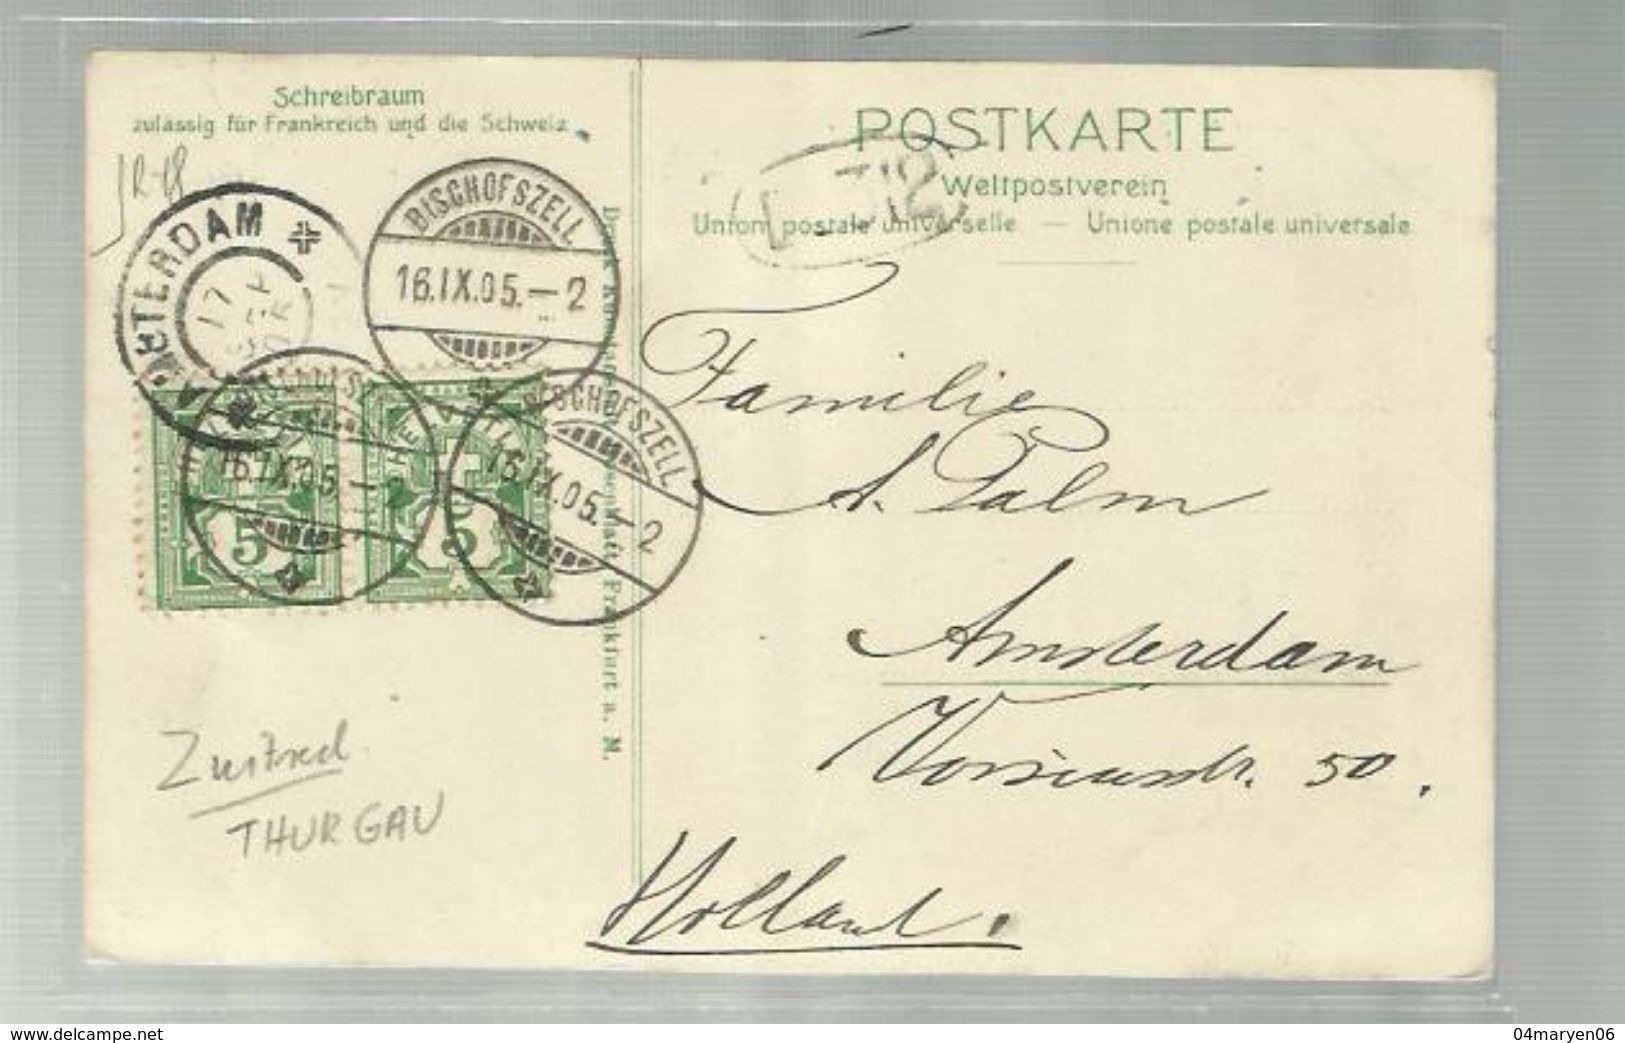 Schreibraum
zulässig für Frankreich und die Schweiz
POSTKARTE
Weltpostverein
Union postale universelle — Unione postale universale
AMSTERDAM
17
BISCHOFSZELL
16.IX.05.–2
16.IX.05.–2
BISCHOFSZELL
16.IX.05.–2
5
5
Druck Frankfurt a. M.
Familie
A. Palm
Amsterdam
50.
Holland.
THURGAU
www.delcampe.net
04maryen06